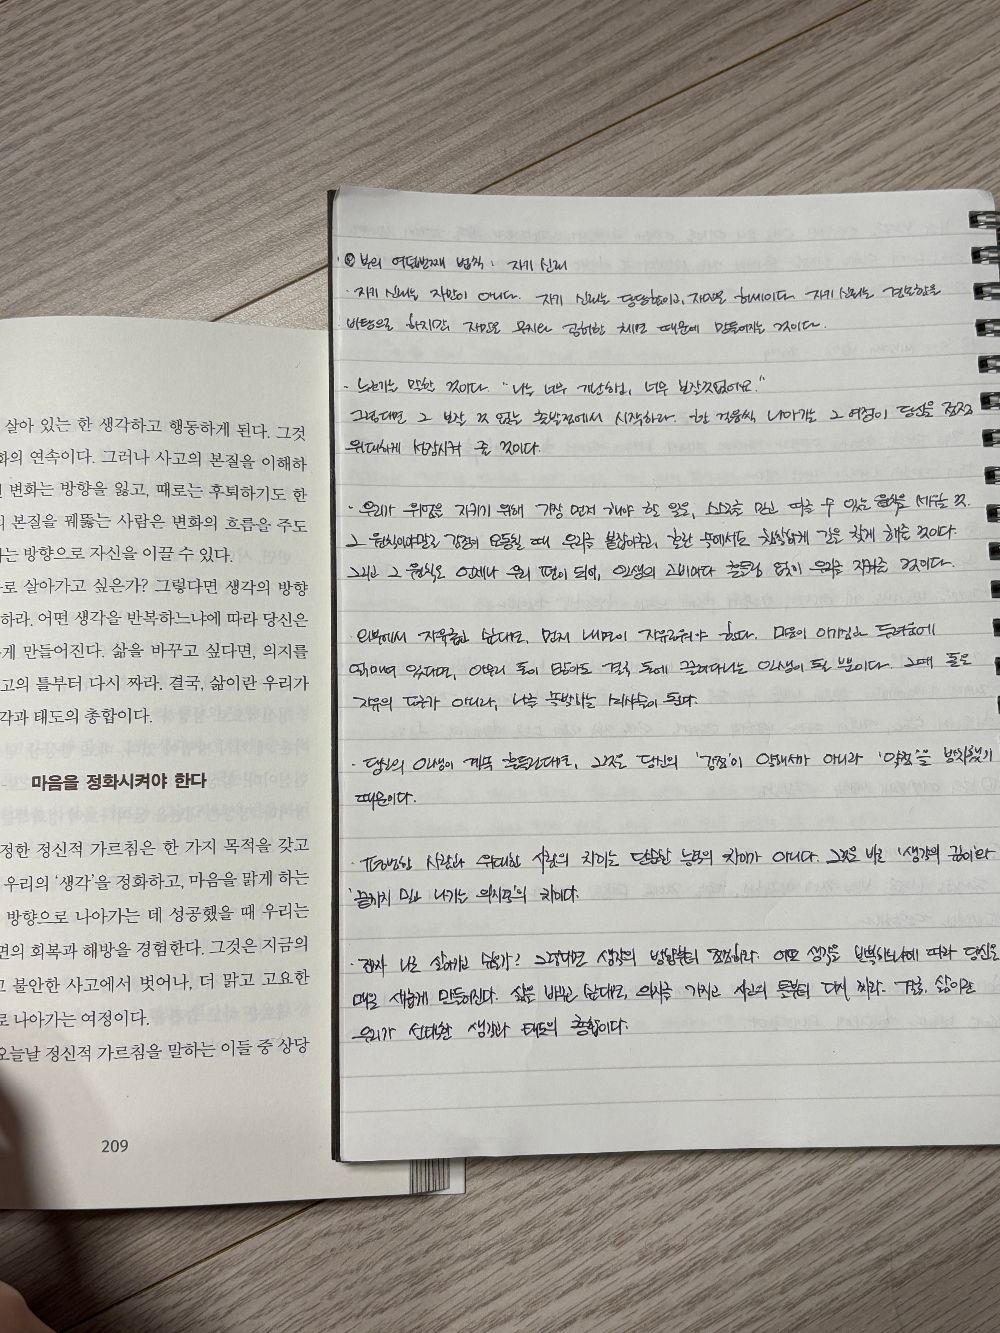 살아 있는 한 생각하고 행동하게 된다. 그것
화의 연속이다. 그러나 사고의 본질을 이해하
변화는 방향을 잃고, 때로는 후퇴하기도 한
본질을 꿰뚫는 사람은 변화의 흐름을 주도
는 방향으로 자신을 이끌 수 있다.
로 살아가고 싶은가? 그렇다면 생각의 방향
하라. 어떤 생각을 반복하느냐에 따라 당신은
게 만들어진다. 삶을 바꾸고 싶다면, 의지를
고의 틀부터 다시 짜라. 결국, 삶이란 우리가
각과 태도의 총합이다.
마음을 정화시켜야 한다
정한 정신적 가르침은 한 가지 목적을 갖고
우리의 '생각'을 정화하고, 마음을 맑게 하는
방향으로 나아가는 데 성공했을 때 우리는
면의 회복과 해방을 경험한다. 그것은 지금의
고 불안한 사고에서 벗어나, 더 맑고 고요한
로 나아가는 여정이다.
오늘날 정신적 가르침을 말하는 이들 중 상당
209
부의 여덟번째 법칙: 자기 신뢰
· 자기 신뢰는 자만이 아니다. 자기 신뢰는 당당함이고, 자만은 허세이다. 자기 신뢰는 견고함을
바탕으로 하지만, 자만은 무지와 공허한 체면 때문에 만들어지는 것이다.
· 누군가는 말할 것이다. "나는 너무 가난하고, 너무 보잘것없어요."
그렇다면 그 보잘 것 없는 출발점에서 시작하라. 한 걸음씩 나아가는 그 여정이 당신을 점점
위대하게 성장시켜 줄 것이다.
· 우리가 위엄을 지키기 위해 가장 먼저 해야 할 일은, 스스로 믿고 따를 수 있는 원칙을 세우는 것.
그 원칙이야말로 감정이 요동칠 때 우리를 붙잡아주고, 혼란 속에서도 침착하게 길을 찾게 해줄 것이다.
그리고 그 원칙은 언제나 우리 편이 되어, 인생의 고비마다 흔들림 없이 우리를 지켜줄 것이다.
· 외부에서 자유롭고 싶다면, 먼저 내면이 자유로워야 한다. 마음이 이기심과 두려움에
얽매여 있다면, 아무리 돈이 많아도 결국 돈에 끌려다니는 인생이 될 뿐이다. 그때 돈은
자유의 도구가 아니라, 나를 속박하는 쇠사슬이 된다.
· 당신의 인생이 계속 흔들린다면, 그것은 당신의 '강점'이 약해서가 아니라 '약점'을 방치했기
때문이다.
· 평범한 사람과 위대한 사람의 차이는 단순한 능력의 차이가 아니다. 그것은 바로 '생각의 깊이'와
'끝까지 밀고 나가는 의지력'의 차이다.
· 전자 나은 살아가고 싶은가? 그렇다면 생각의 방향부터 점검하라. 어떤 생각을 반복하느냐에 따라 당신은
매일 새롭게 만들어진다. 삶을 바꾸고 싶다면, 의지를 가지고 사고의 틀부터 다시 짜라. 결국, 삶이란
우리가 선택한 생각과 태도의 총합이다.